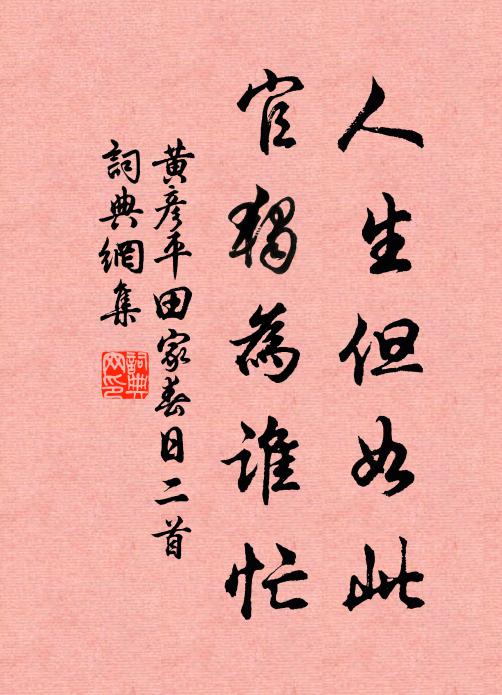 人生但如此
官獨為誰忙
黃彥平田家春日二首
詞典網集
詞典網印